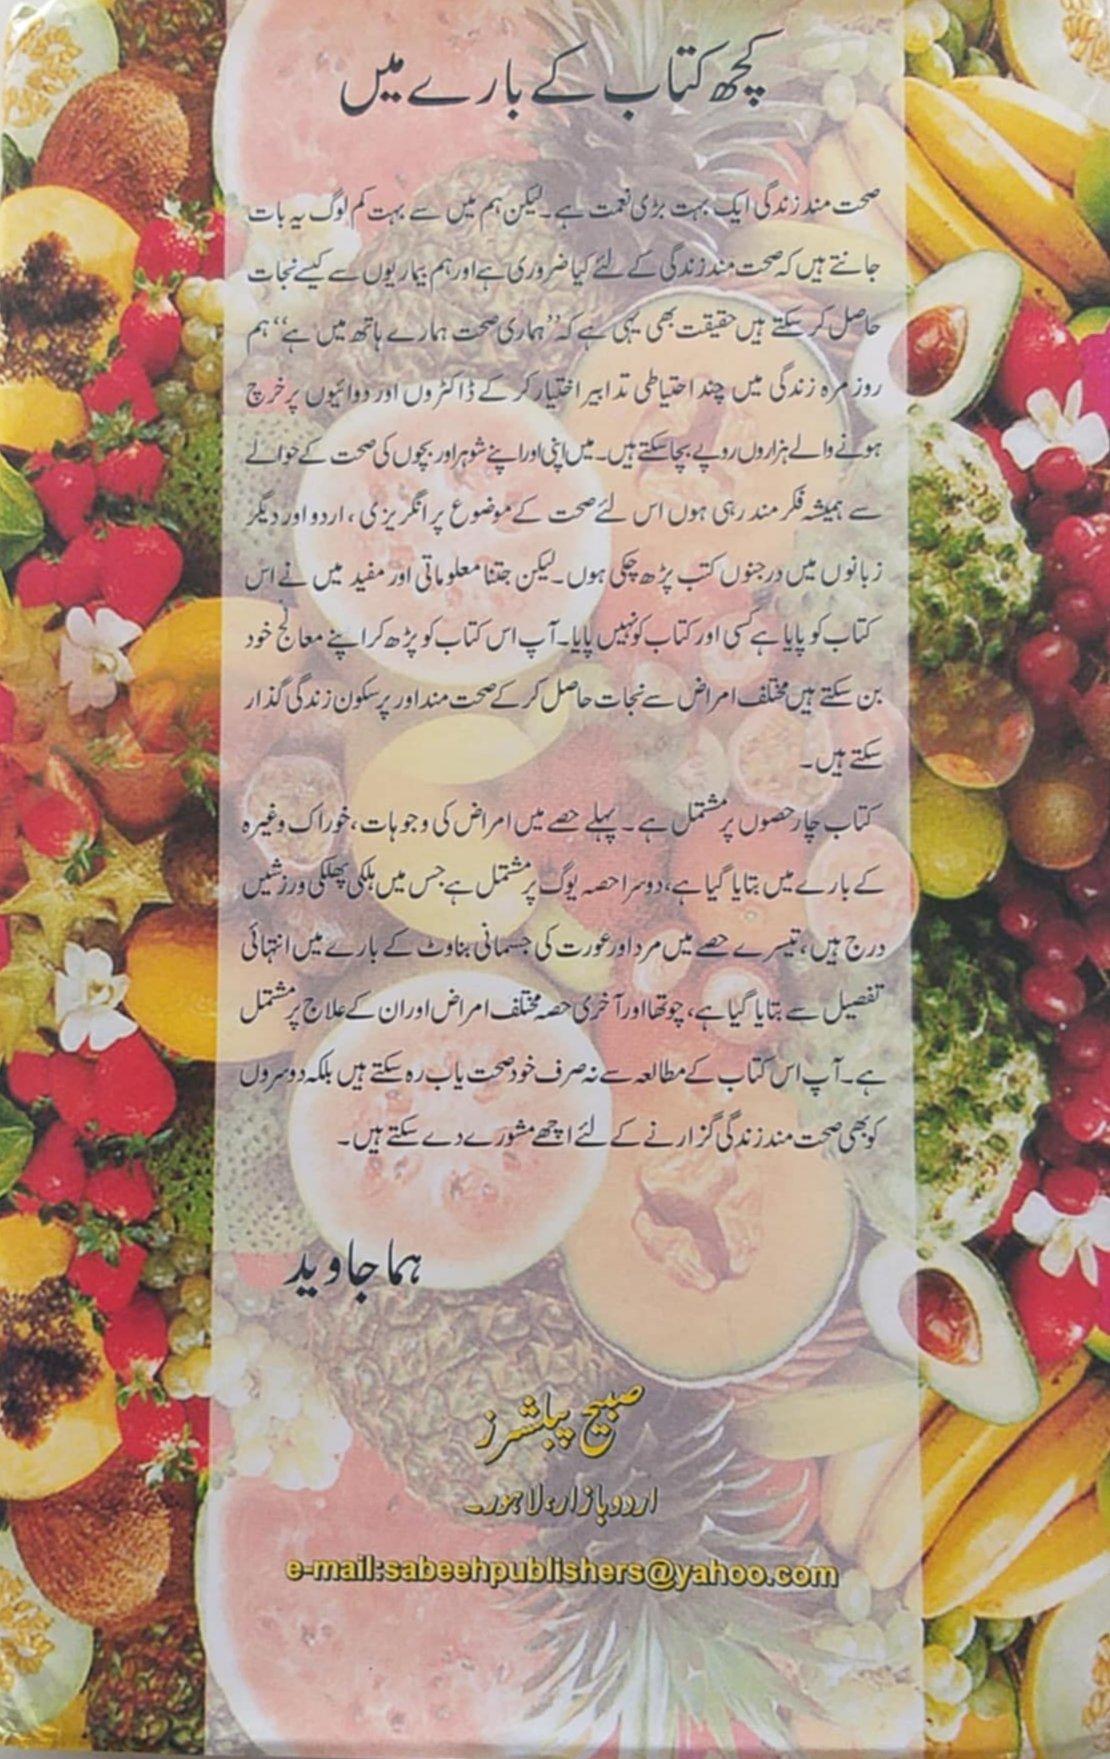 کچھ کتاب کے بارے میں
صحت مند زندگی ایک بہت بڑی نعمت ہے۔ لیکن ہم میں سے بہت کم لوگ یہ بات
جانتے ہیں کہ صحت مند زندگی کے لئے کیا ضروری ہے اور ہم بیماریوں سے کیسے نجات
حاصل کر سکتے ہیں حقیقت بھی یہی ہے کہ ’’ہماری صحت ہمارے ہاتھ میں ہے‘‘ ہم
روز مرہ زندگی میں چند احتیاطی تدابیر اختیار کر کے ڈاکٹروں اور دوائیوں پر خرچ
ہونے والے ہزاروں روپے بچا سکتے ہیں۔ میں اپنی اور اپنے شوہر اور بچوں کی صحت کے حوالے
سے ہمیشہ فکر مند رہی ہوں اس لئے صحت کے موضوع پر انگریزی، اردو اور دیگر
زبانوں میں درجنوں کتب پڑھ چکی ہوں۔ لیکن جتنا معلوماتی اور مفید میں نے اس
کتاب کو پایا ہے کسی اور کتاب کو نہیں پایا۔ آپ اس کتاب کو پڑھ کر اپنے معالج خود
بن سکتے ہیں مختلف امراض سے نجات حاصل کر کے صحت مند اور پر سکون زندگی گذار
سکتے ہیں۔
کتاب چار حصوں پر مشتمل ہے۔ پہلے حصے میں امراض کی وجوہات، خوراک وغیرہ
کے بارے میں بتایا گیا ہے، دوسرا حصہ یوگ پر مشتمل ہے جس میں ہلکی پھلکی ورزشیں
درج ہیں، تیسرے حصے میں مرد اور عورت کی جسمانی بناوٹ کے بارے میں انتہائی
تفصیل سے بتایا گیا ہے، چوتھا اور آخری حصہ مختلف امراض اور ان کے علاج پر مشتمل
ہے۔ آپ اس کتاب کے مطالعہ سے نہ صرف خود صحت یاب رہ سکتے ہیں بلکہ دوسروں
کو بھی صحت مند زندگی گزارنے کے لئے اچھے مشورے دے سکتے ہیں۔
ہما جاوید
صبیح پبلشرز
اردو بازار، لاہور۔
e-mail:sabeehpublishers@yahoo.com